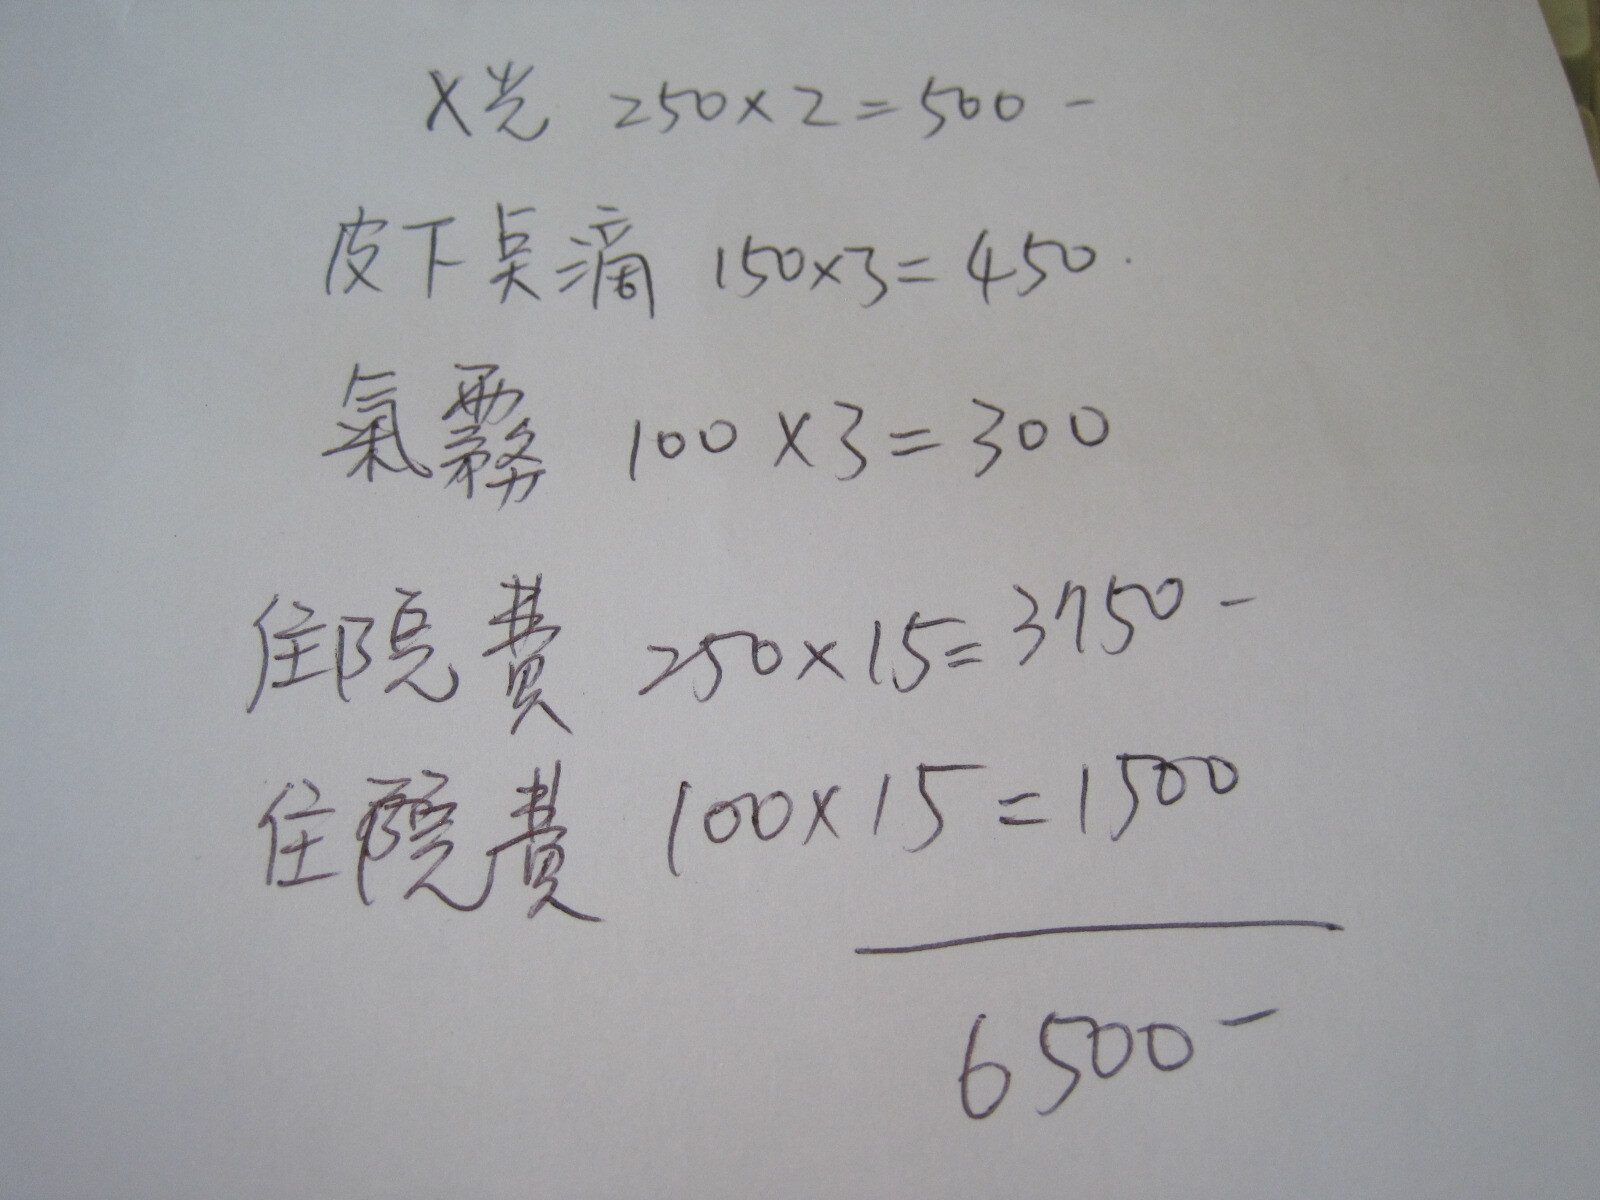 X光 250×2=500-
皮下点滴 150×3=450.
氣霧 100×3=300
住院費 250×15=3750-
住院費 100×15=1500
6500-